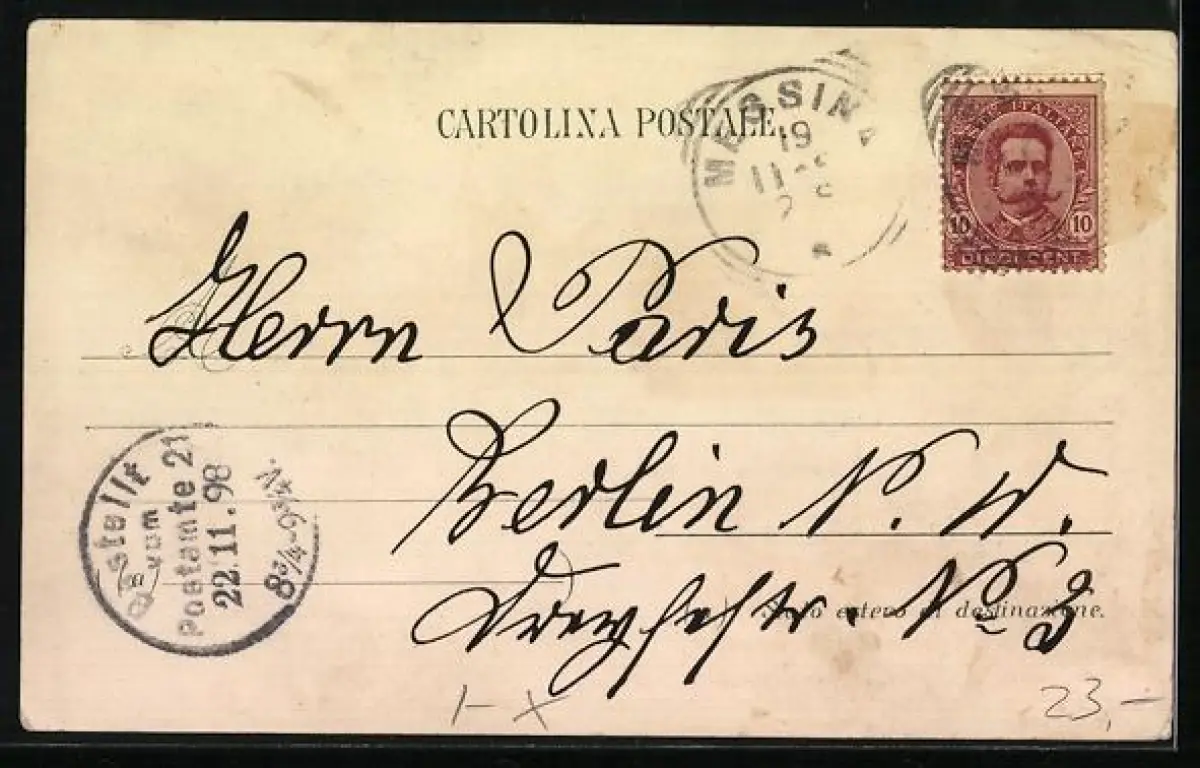 CARTOLINA POSTALE
MESSINA
19
11
POSTE ITALIANE
10 10
DIECI CENT.
Herrn Paris
Berlin N. W.
Dreysestr. No 3
Stato estero di destinazione.
(a)
Bestellt
vom
Postamte 21
22.11.98
8¾-9¾V.
1-X
23,-